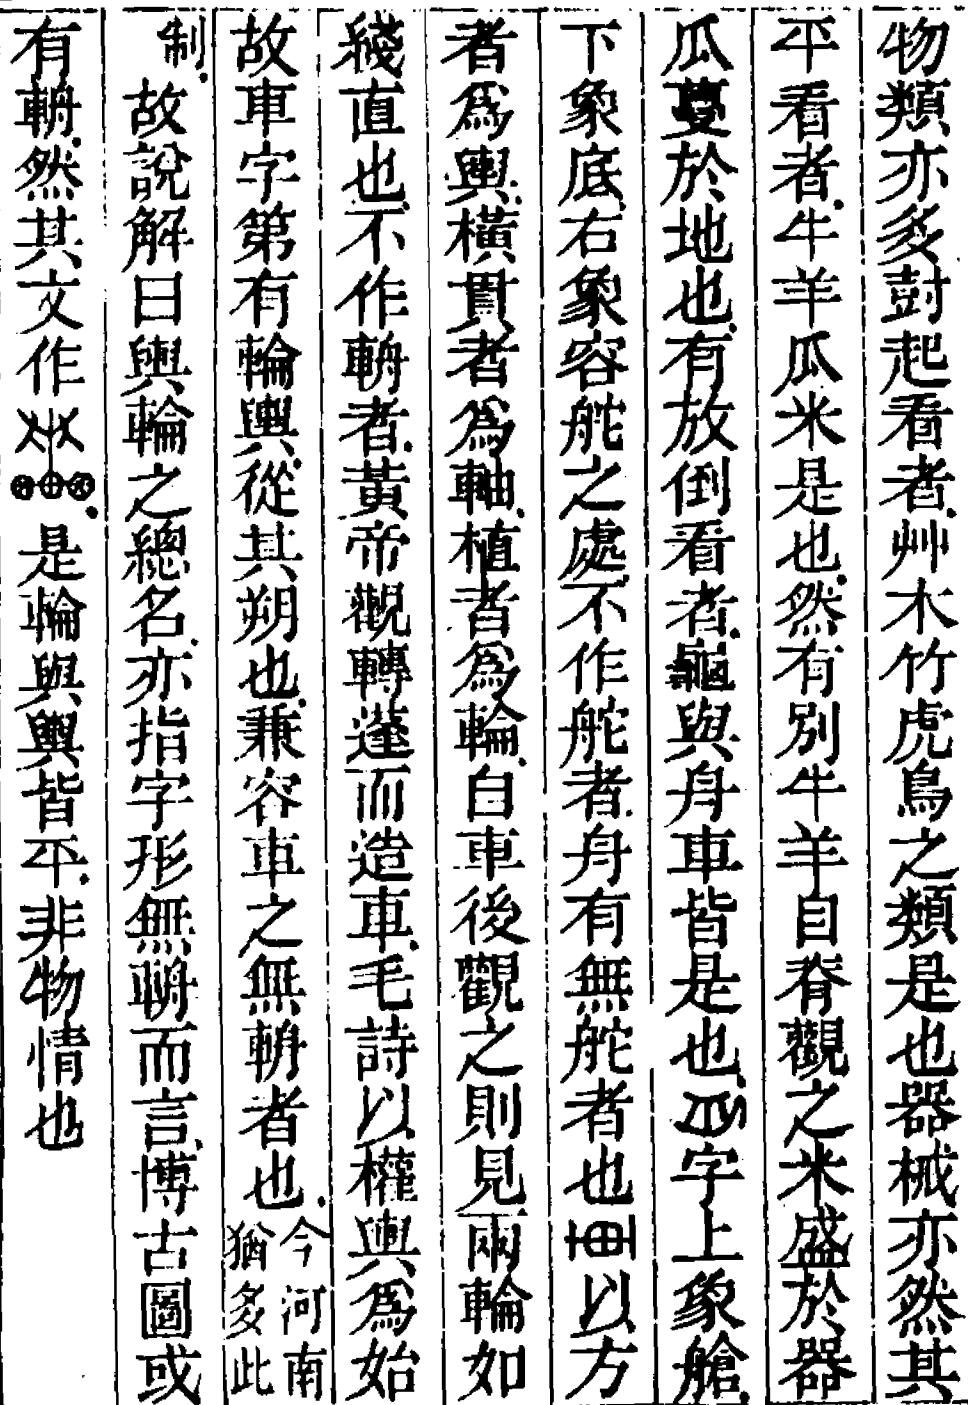 物類亦多㝵起看者艸木竹虎鳥之類是也器械亦然其
平看者牛羊瓜米是也然有別牛羊自脊觀之米盛於器
瓜蔓於地也有放倒看者龜與舟車皆是也字上象艙
下象底右象容舵之處不作舵者舟有無舵者也以方
者爲輿橫貫者爲軸植者爲輪自車後觀之則見兩輪如
綫直也不作輈者黃帝觀轉蓬而造車毛詩以權輿爲始
故車字第有輪輿從其朔也兼容車之無輈者也今河南猶多此
制故說解曰輿輪之總名亦指字形無輈而言博古圖或
有輈然其文作是輪與輿皆平非物情也